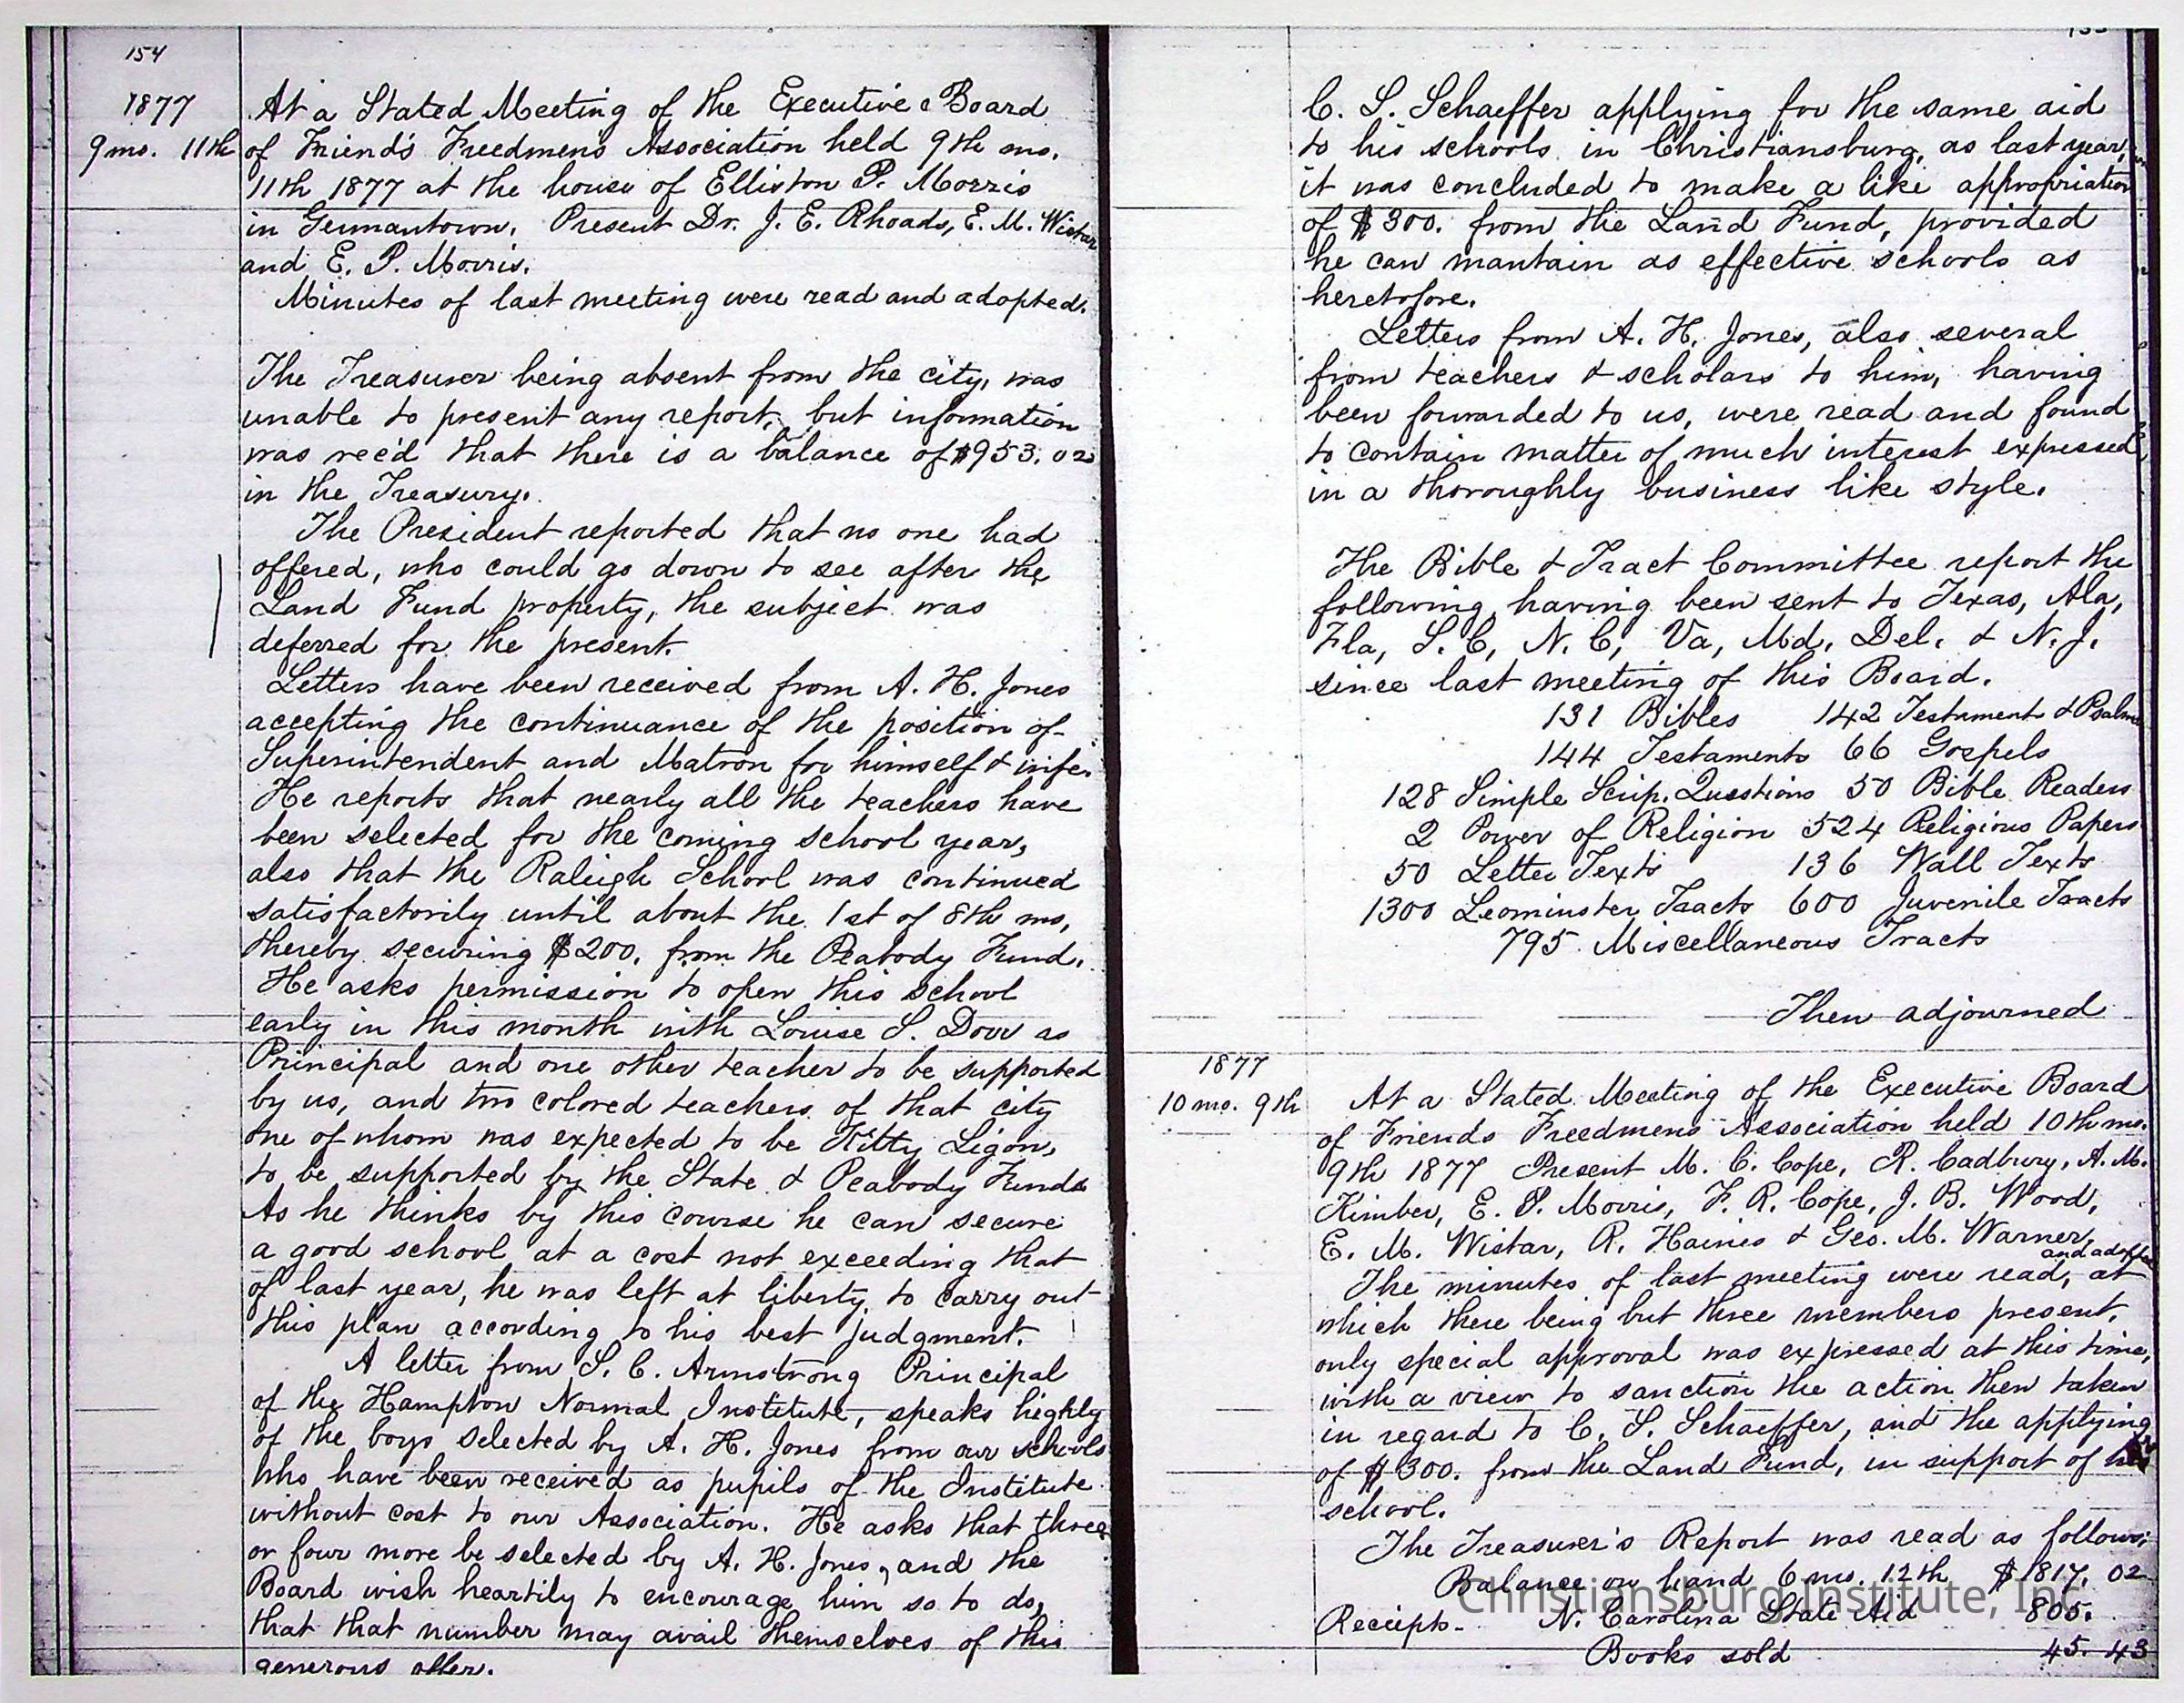 154
1877
9 mo. 11th
At a Stated Meeting of the Executive Board
of Friends Freedmen's Association held 9th mo.
11th 1877 at the house of Elliston P. Morris
in Germantown. Present Dr. J. E. Rhoads, E. M. Wistar
and E. P. Morris.
Minutes of last meeting were read and adopted.
The Treasurer being absent from the city, was
unable to present any report, but information
was rec'd that there is a balance of $953.02
in the Treasury.
The President reported that no one had
offered, who could go down to see after the
Land Fund property, the subject was
deferred for the present.
Letters have been received from A. H. Jones
accepting the continuance of the position of
Superintendent and Matron for himself & wife.
He reports that nearly all the teachers have
been selected for the coming school year,
also that the Raleigh School was continued
satisfactorily until about the 1st of 8th mo,
thereby securing $200. from the Peabody Fund.
He asks permission to open this school
early in this month with Louise S. Dorr as
Principal and one other teacher to be supported
by us, and two colored teachers of that city
one of whom was expected to be Kitty Ligon,
to be supported by the State & Peabody Funds
As he thinks by this course he can secure
a good school at a cost not exceeding that
of last year, he was left at liberty to carry out
this plan according to his best judgment.
A letter from S. C. Armstrong Principal
of the Hampton Normal Institute, speaks highly
of the boys selected by A. H. Jones from our schools
who have been received as pupils of the Institute
without cost to our Association. He asks that three
or four more be selected by A. H. Jones, and the
Board wish heartily to encourage him so to do,
that that number may avail themselves of this
generous offer.
C. S. Schaeffer applying for the same aid
to his schools in Christiansburg, as last year,
it was concluded to make a like appropriation
of $300. from the Land Fund, provided
he can mantain as effective schools as
heretofore.
Letters from A. H. Jones, also several
from teachers & scholars to him, having
been forwarded to us, were read and found
to contain matter of much interest expressed
in a thoroughly business like style.
The Bible & Tract Committee report the
following, having been sent to Texas, Ala,
Fla, S. C, N. C, Va, Md, Del. & N. J.
since last meeting of this Board.
131 Bibles 142 Testament & Psalms
144 Testaments 66 Gospels
128 Simple Scrip. Questions 50 Bible Readers
2 Power of Religion 524 Religious Papers
50 Letter Texts 136 Wall Texts
1300 Leominster Tracts 600 Juvenile Tracts
795 Miscellaneous Tracts
Then adjourned
1877
10 mo. 9th
At a Stated Meeting of the Executive Board
of Friends Freedmens Association held 10th mo.
9th 1877 Present M. C. Cope, R. Cadbury, A. M.
Kimber, E. P. Morris, F. R. Cope, J. B. Wood,
E. M. Wistar, R. Haines & Geo. M. Warner,
The minutes of last meeting were read, and adopted at
which there being but three members present,
only special approval was expressed at this time,
with a view to sanction the action then taken
in regard to C. S. Schaeffer, and the applying
of $300. from the Land Fund, in support of his
school.
The Treasurer's Report was read as follows;
Balance on hand 6 mo. 12th $1817.02
Receipts. N. Carolina State Aid 805.
Books sold 45.43
Christiansburg Institute, Inc.